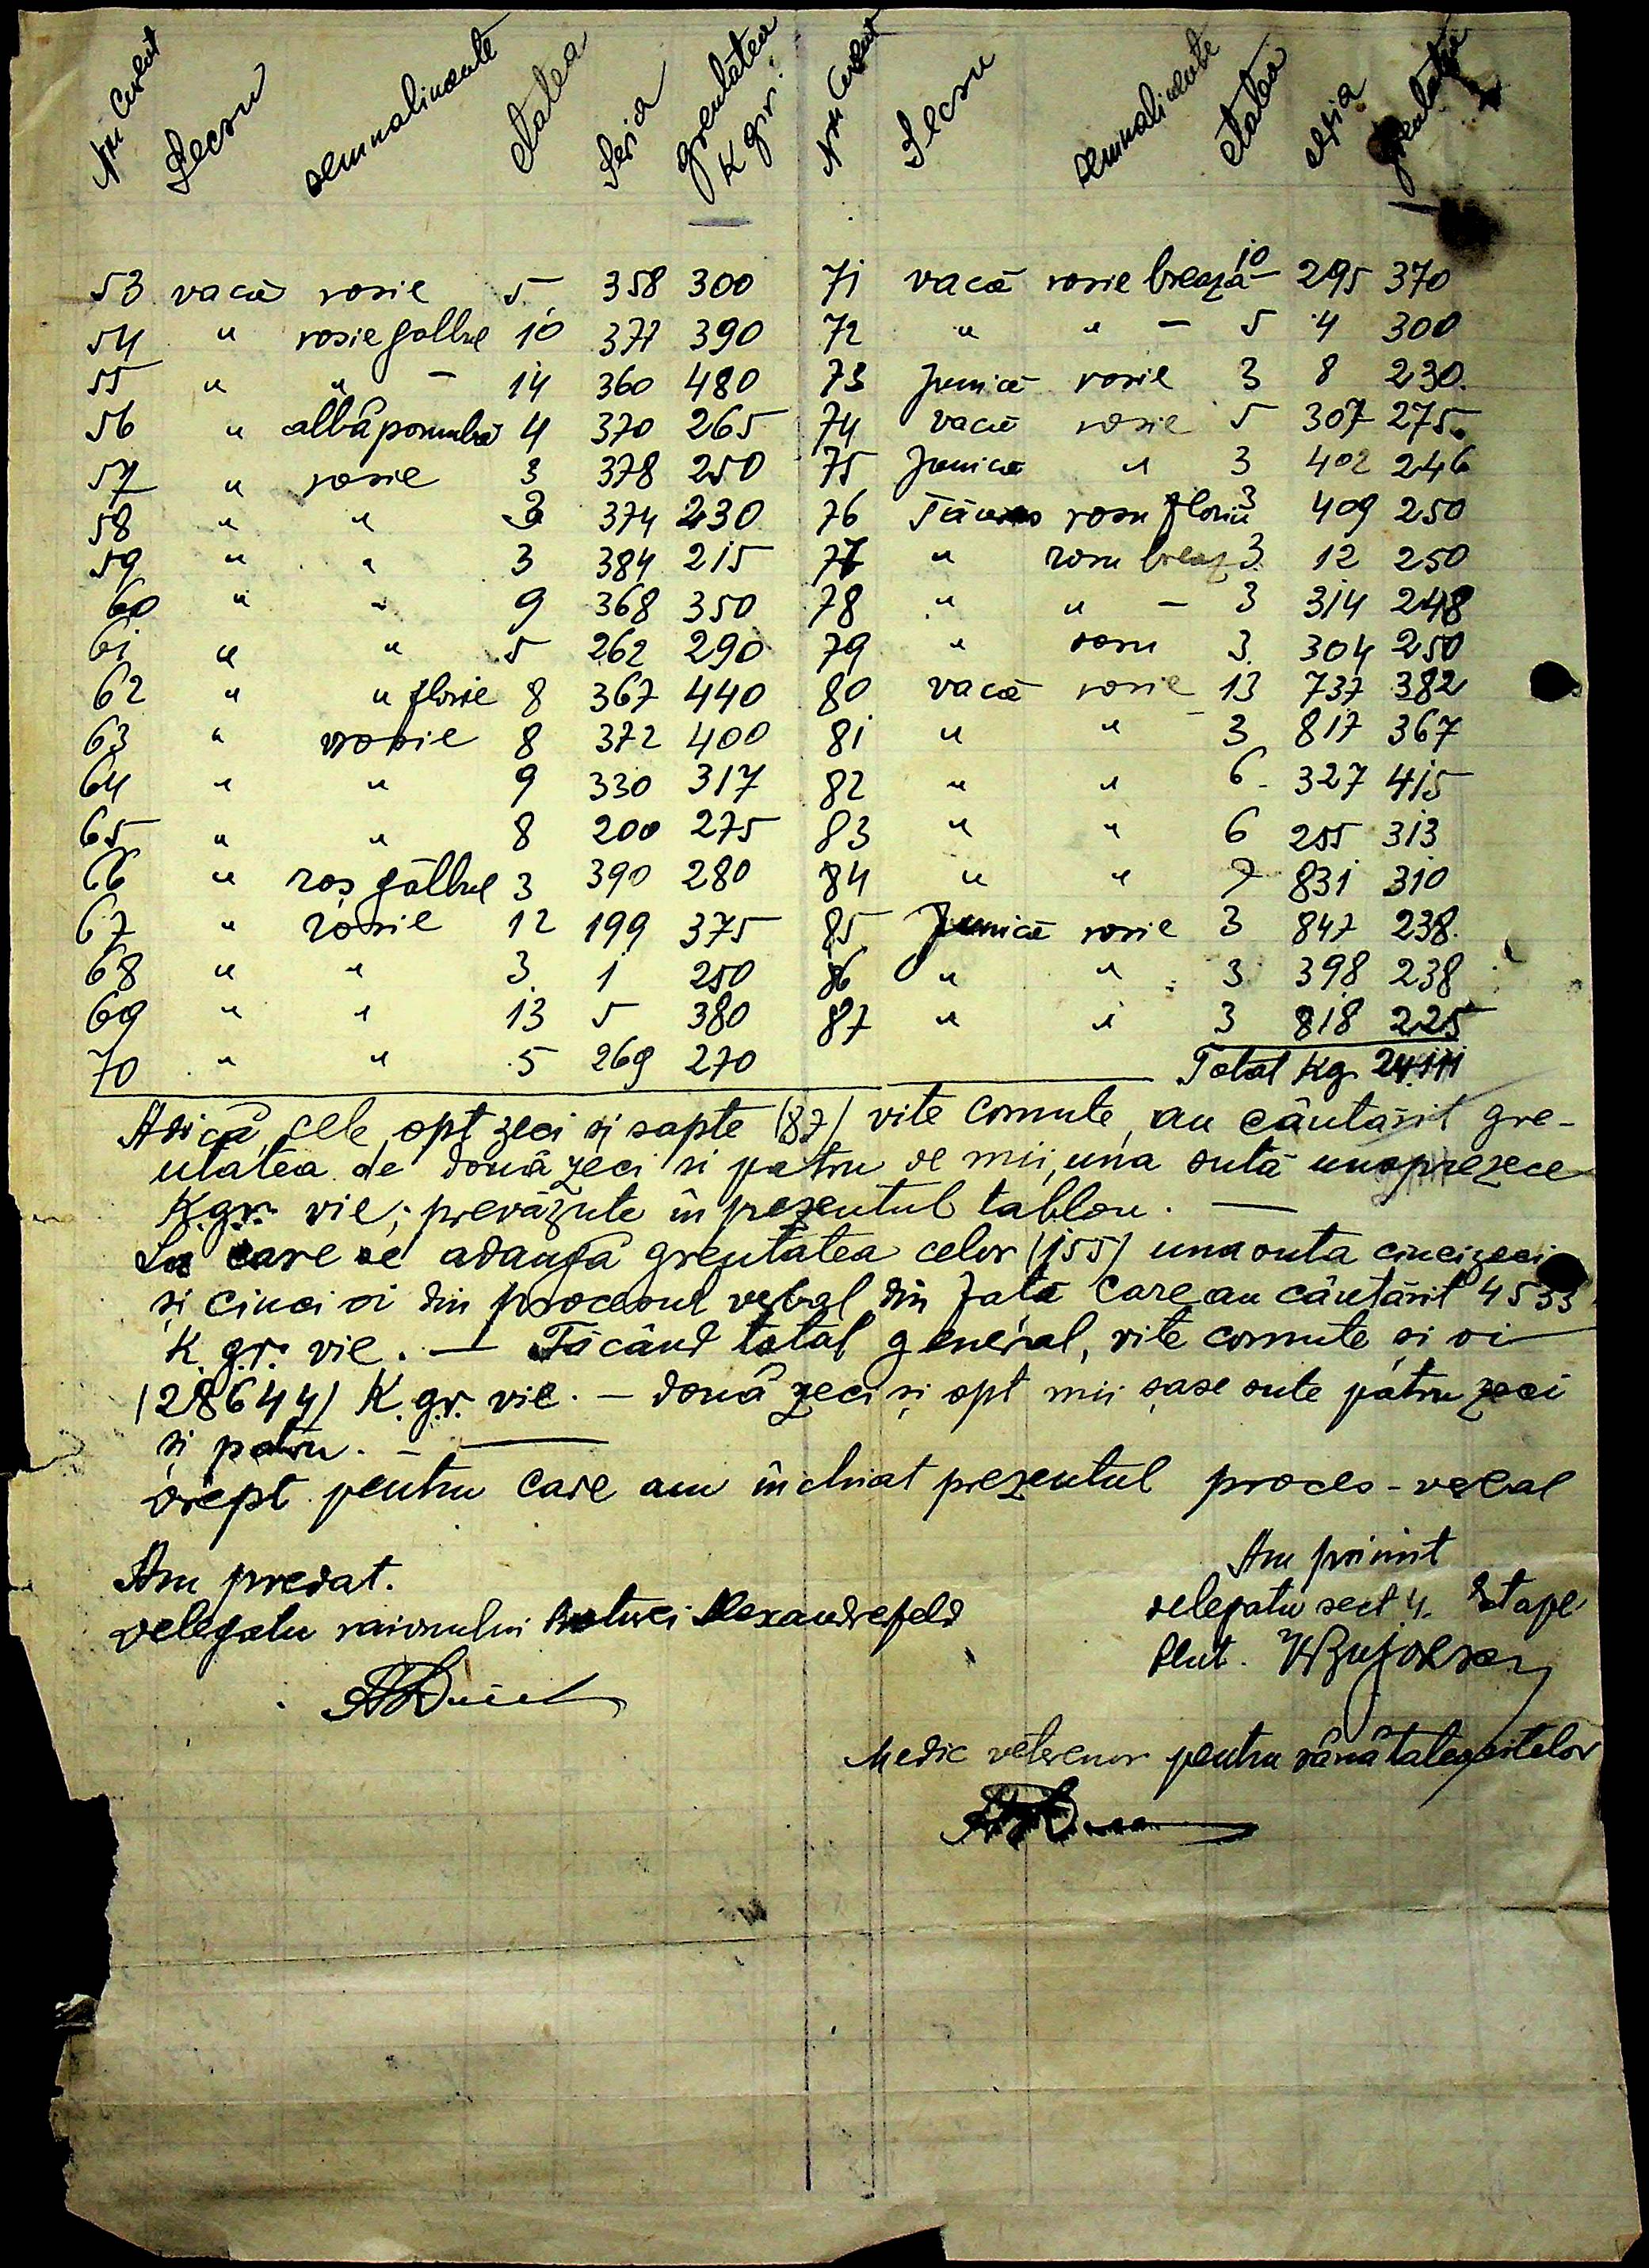 Nru Curent Secsu semnalmente etatea Seria greutatea K gr.
53 vacă rosie 5 358 300
54 " rosie galbue 10 377 390
55 " " – 14 360 480
56 " albă porumba 4 370 265
57 " rosie 3 378 250
58 " " 3 374 230
59 " " 3 384 215
60 " " 9 368 350
61 " " 5 262 290
62 " " florie 8 367 440
63 " rosie 8 372 400
64 " " 9 330 317
65 " " 8 200 275
66 " roș gălbue 3 390 280
67 " roșie 12 199 375
68 " " 3 1 250
69 " " 13 5 380
70 " " 5 269 270
Nru Curent Secsu semnalimente etatea seria greutatea
71 vacă rosie brează 10 295 370
72 " " – 5 4 300
73 Junică rosie 3 8 230
74 vacă rosie 5 307 275
75 Junică " 3 402 246
76 rosu 3 409 250
77 " rosu breaz 3 12 250
78 " " – 3 314 248
79 " rosu 3 304 250
80 vacă rosie 13 737 382
81 " " 3 817 367
82 " " 6 327 415
83 " " 6 255 313
84 " " 7 831 310
85 Junică rosie 3 847 238
86 " " 3 398 238
87 " " 3 818 225
Total Kg. 24111
Adică, cele opt zeci si sapte (87) vite cornute, au cântărit gre-
utatea de două zeci si patru de mii, una sută unsprezece
K.gr. vie; prevăzute în prezentul tablou. —
La care se adaugă greutatea celor (155) una suta cincizeci
și cinci oi din procesul verbal din fată care au cântărit 4533
K.gr. vie. — Făcând total general, vite cornute si oi
(28644) K.gr. vie. – două zeci și opt mii șase sute patru zeci
si patru. –
Drept pentru care am închiat prezentul proces-verbal
Am predat.
Delegatu raionului Alexandrefeld
Am primit
delegatu sect 4. Etape
Plut.
Medic veterenar pentru sănătatea vitelor